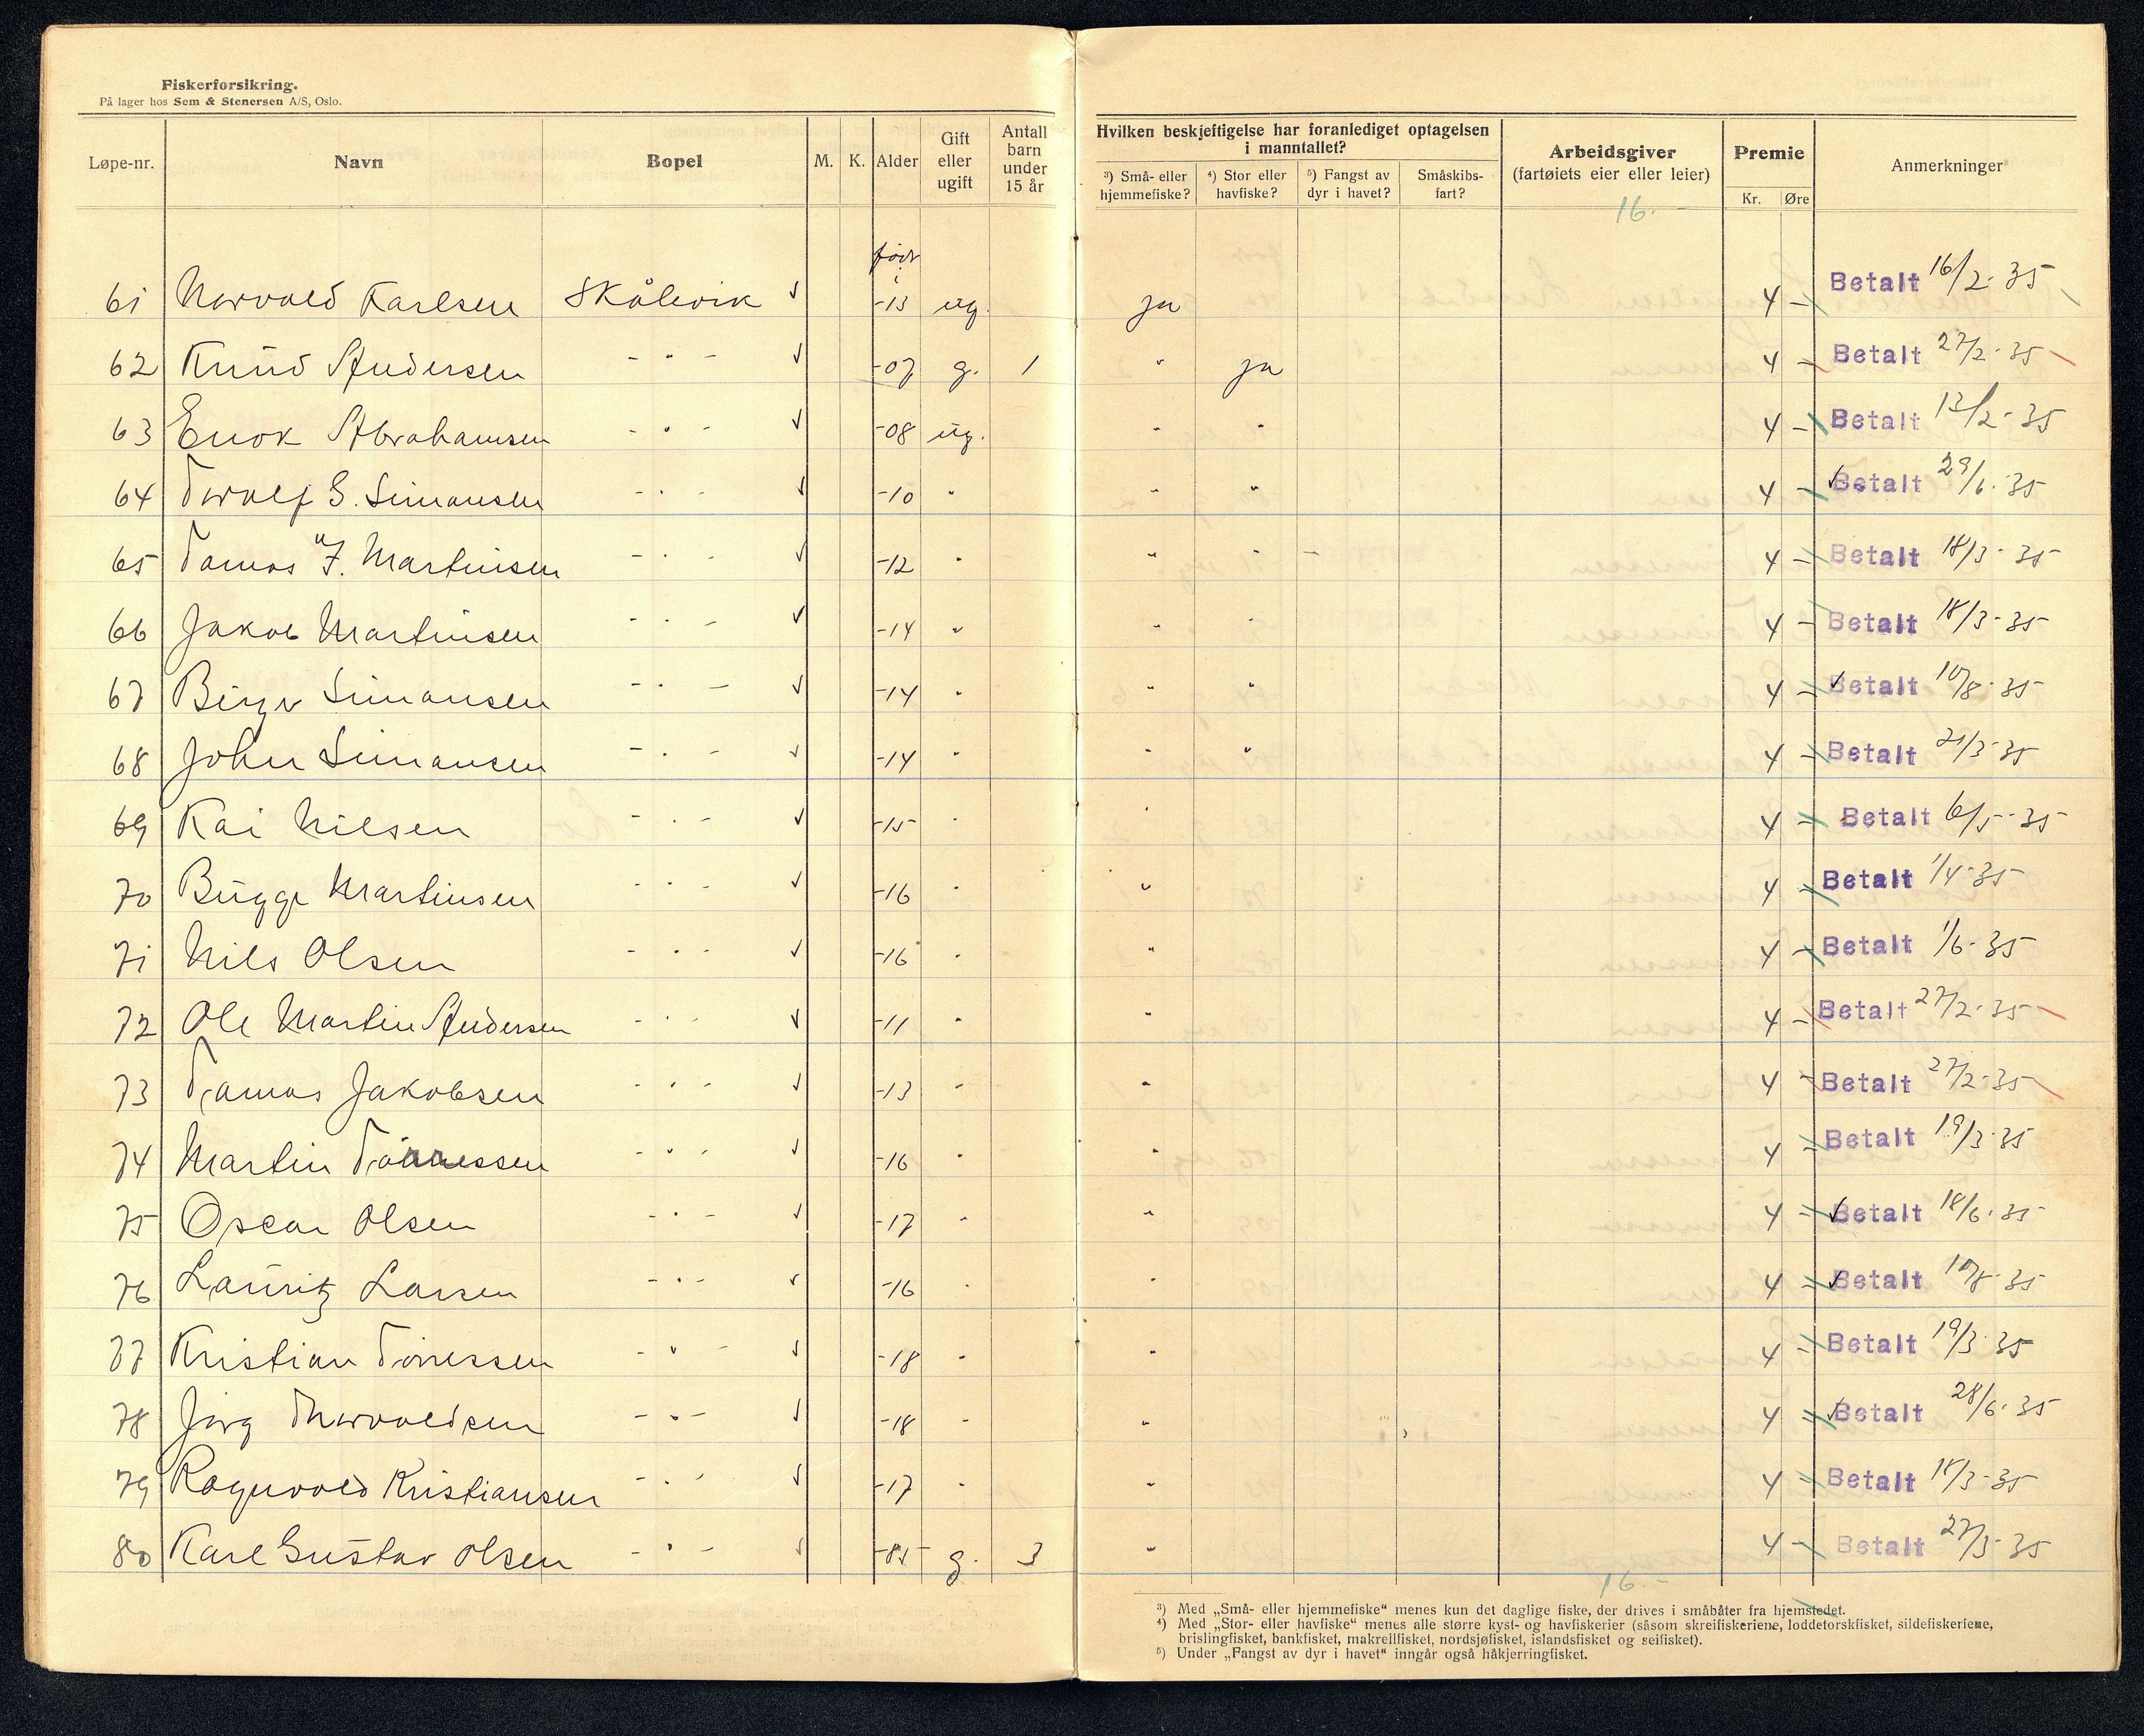 Fiskerforsikring.
På lager hos Sem & Stenersen A/S, Oslo.
Løpe-nr. Navn Bopel M. K. Alder Gift eller ugift Antall barn under 15 år Hvilken beskjeftigelse har foranlediget optagelsen i manntallet? ³) Små- eller hjemmefiske? ⁴) Stor eller havfiske? ⁵) Fangst av dyr i havet? Småskibs-fart? Arbeidsgiver (fartøiets eier eller leier) Premie Kr. Øre Anmerkninger
16.-
født i
61 Norvald Karlsen Skålevik √ -13 ug. ja 4 - Betalt 16/2-35
62 Knud Andersen - " - √ -07 g. 1 " ja 4 - Betalt 27/2-35
63 Enok Abrahamsen - " - √ -08 ug. " " 4 - Betalt 12/2-35
64 Torolf G. Simonsen - " - √ -10 " " " 4 - Betalt 29/6-35
65 Tomas F. Martinsen - " - √ -12 " " " - 4 - Betalt 18/3-35
66 Jakob Martinsen - " - √ -14 " " " 4 - Betalt 18/3-35
67 Birger Simonsen - " - √ -14 " " " 4 - Betalt 10/8-35
68 John Simonsen - " - √ -14 " " " 4 - Betalt 21/3-35
69 Kai Nilsen - " - √ -15 " " 4 - Betalt 6/5-35
70 Bugge Martinsen - " - √ -16 " " 4 - Betalt 1/4-35
71 Nils Olsen - " - √ -16 " " 4 - Betalt 1/6-35
72 Ole Martin Andersen - " - √ -11 " " 4 - Betalt 27/2-35
73 Tomas Jakobsen - " - √ -13 " " 4 - Betalt 27/2-35
74 Martin Tönnessen - " - √ -16 " " 4 - Betalt 19/3-35
75 Oscar Olsen - " - √ -17 " " 4 - Betalt 18/6-35
76 Lauritz Larsen - " - √ -16 " " 4 - Betalt 10/8-35
77 Kristian Tönessen - " - √ -18 " " 4 - Betalt 19/3-35
78 Jörg Thorvaldsen - " - √ -18 " " 4 - Betalt 28/6-35
79 Ragnvald Kristiansen - " - √ -17 " " 4 - Betalt 18/3-35
80 Karl Gustav Olsen - " - √ -85 g. 3 " 4 - Betalt 27/3-35
16.-
³) Med „Små- eller hjemmefiske“ menes kun det daglige fiske, der drives i småbåter fra hjemstedet.
⁴) Med „Stor- eller havfiske“ menes alle større kyst- og havfiskerier (såsom skreifiskeriene, loddetorskfisket, sildefiskeriene,
brislingfisket, bankfisket, makrellfisket, nordsjøfisket, islandsfisket og seifisket).
⁵) Under „Fangst av dyr i havet“ inngår også håkjerringfisket.